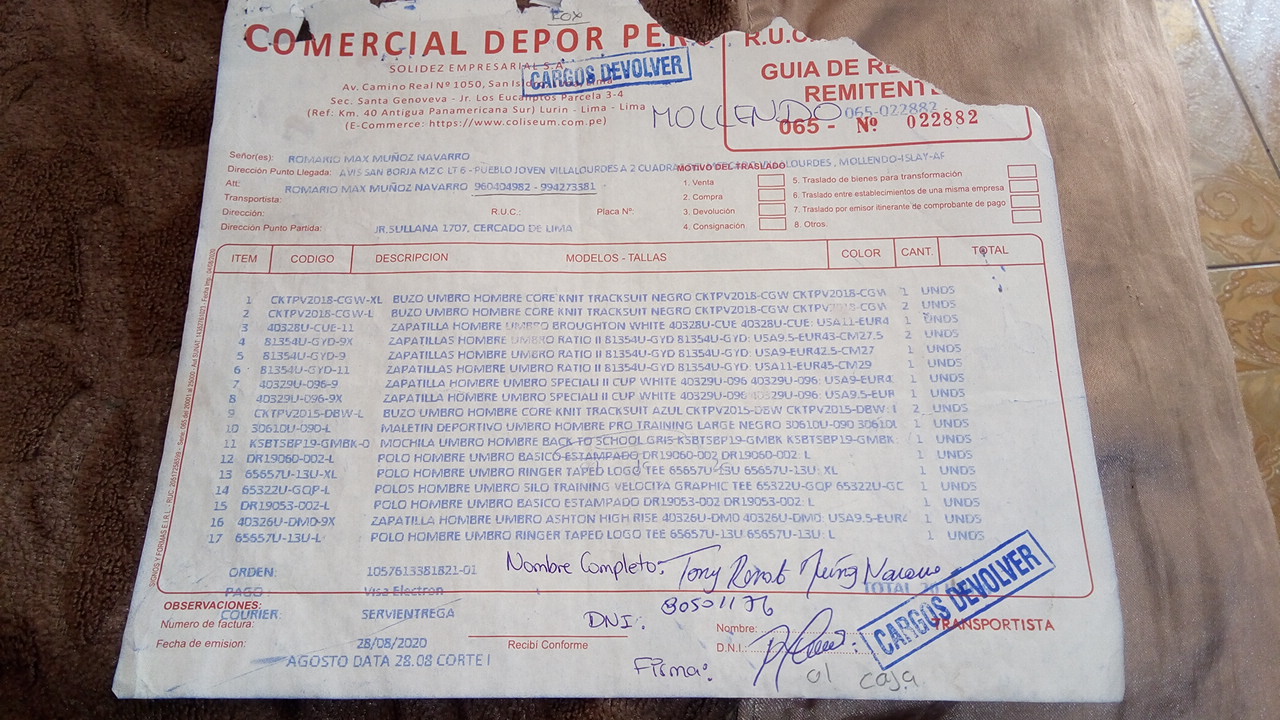 FOX
COMERCIAL DEPOR PER
SOLIDEZ EMPRESARIAL S.A.
CARGOS DEVOLVER
Av. Camino Real Nº 1050, San Isidro - Lima - Lima
Sec. Santa Genoveva - Jr. Los Eucaliptos Parcela 3-4
(Ref: Km. 40 Antigua Panamericana Sur) Lurin - Lima - Lima
(E-Commerce: https://www.coliseum.com.pe)
MOLLENDO
R.U.C
GUIA DE RE
REMITENTE
065-022882
065 - Nº 022882
Señor(es): ROMARIO MAX MUÑOZ NAVARRO
Dirección Punto Llegada: AVIS SAN BORJA MZ C LT 6 - PUEBLO JOVEN VILLALOURDES A 2 CUADRAS DEL MERCADO VILLALOURDES , MOLLENDO-ISLAY-AR
Att: ROMARIO MAX MUÑOZ NAVARRO 960404982 - 994273381
Transportista:
Dirección: R.U.C.: Placa Nº:
Dirección Punto Partida: JR.SULLANA 1707, CERCADO DE LIMA
MOTIVO DEL TRASLADO
1. Venta
2. Compra
3. Devolución
4. Consignación
5. Traslado de bienes para transformación
6. Traslado entre establecimientos de una misma empresa
7. Traslado por emisor itinerante de comprobante de pago
8. Otros
ITEM CODIGO DESCRIPCION MODELOS - TALLAS COLOR CANT. TOTAL
1 CKTPV2018-CGW-XL BUZO UMBRO HOMBRE CORE KNIT TRACKSUIT NEGRO CKTPV2018-CGW CKTPV2018-CGW 1 UNDS
2 CKTPV2018-CGW-L BUZO UMBRO HOMBRE CORE KNIT TRACKSUIT NEGRO CKTPV2018-CGW CKTPV2018-CGW 2 UNDS
3 40328U-CUE-11 ZAPATILLA HOMBRE UMBRO BROUGHTON WHITE 40328U-CUE 40328U-CUE: USA11-EUR4 1 UNDS
4 81354U-GYD-9X ZAPATILLAS HOMBRE UMBRO RATIO II 81354U-GYD 81354U-GYD: USA9.5-EUR43-CM27.5 2 UNDS
5 81354U-GYD-9 ZAPATILLAS HOMBRE UMBRO RATIO II 81354U-GYD 81354U-GYD: USA9-EUR42.5-CM27 1 UNDS
6 81354U-GYD-11 ZAPATILLAS HOMBRE UMBRO RATIO II 81354U-GYD 81354U-GYD: USA11-EUR45-CM29 1 UNDS
7 40329U-096-9 ZAPATILLA HOMBRE UMBRO SPECIALI II CUP WHITE 40329U-096 40329U-096: USA9-EUR4 1 UNDS
8 40329U-096-9X ZAPATILLA HOMBRE UMBRO SPECIALI II CUP WHITE 40329U-096 40329U-096: USA9.5-EUR 1 UNDS
9 CKTPV2015-DBW-L BUZO UMBRO HOMBRE CORE KNIT TRACKSUIT AZUL CKTPV2015-DBW CKTPV2015-DBW: 2 UNDS
10 30610U-090-L MALETIN DEPORTIVO UMBRO HOMBRE PRO TRAINING LARGE NEGRO 30610U-090 30610U 1 UNDS
11 KSBTSBP19-GMBK-0 MOCHILA UMBRO HOMBRE BACK TO SCHOOL GRIS KSBTSBP19-GMBK KSBTSBP19-GMBK: 1 UNDS
12 DR19060-002-L POLO HOMBRE UMBRO BASICO ESTAMPADO DR19060-002 DR19060-002: L 1 UNDS
13 65657U-13U-XL POLO HOMBRE UMBRO RINGER TAPED LOGO TEE 65657U-13U 65657U-13U: XL 1 UNDS
14 65322U-GQP-L POLOS HOMBRE UMBRO SILO TRAINING VELOCITA GRAPHIC TEE 65322U-GQP 65322U-GC 1 UNDS
15 DR19053-002-L POLO HOMBRE UMBRO BASICO ESTAMPADO DR19053-002 DR19053-002: L 1 UNDS
16 40326U-DM0-9X ZAPATILLA HOMBRE UMBRO ASHTON HIGH RISE 40326U-DM0 40326U-DM0: USA9.5-EUR4 1 UNDS
17 65657U-13U-L POLO HOMBRE UMBRO RINGER TAPED LOGO TEE 65657U-13U 65657U-13U: L 1 UNDS
ORDEN: 1057613381821-01
Nombre Completo: Tony Renot Muñoz Navarro
PAGO : Visa Electron
TOTAL 20
OBSERVACIONES:
COURIER: SERVIENTREGA
DNI: 80501176
Numero de factura:
Fecha de emision: 28/08/2020
Recibí Conforme
Nombre:
D.N.I.:
TRANSPORTISTA
CARGOS DEVOLVER
AGOSTO DATA 28.08 CORTE I
Firma:
01 caja